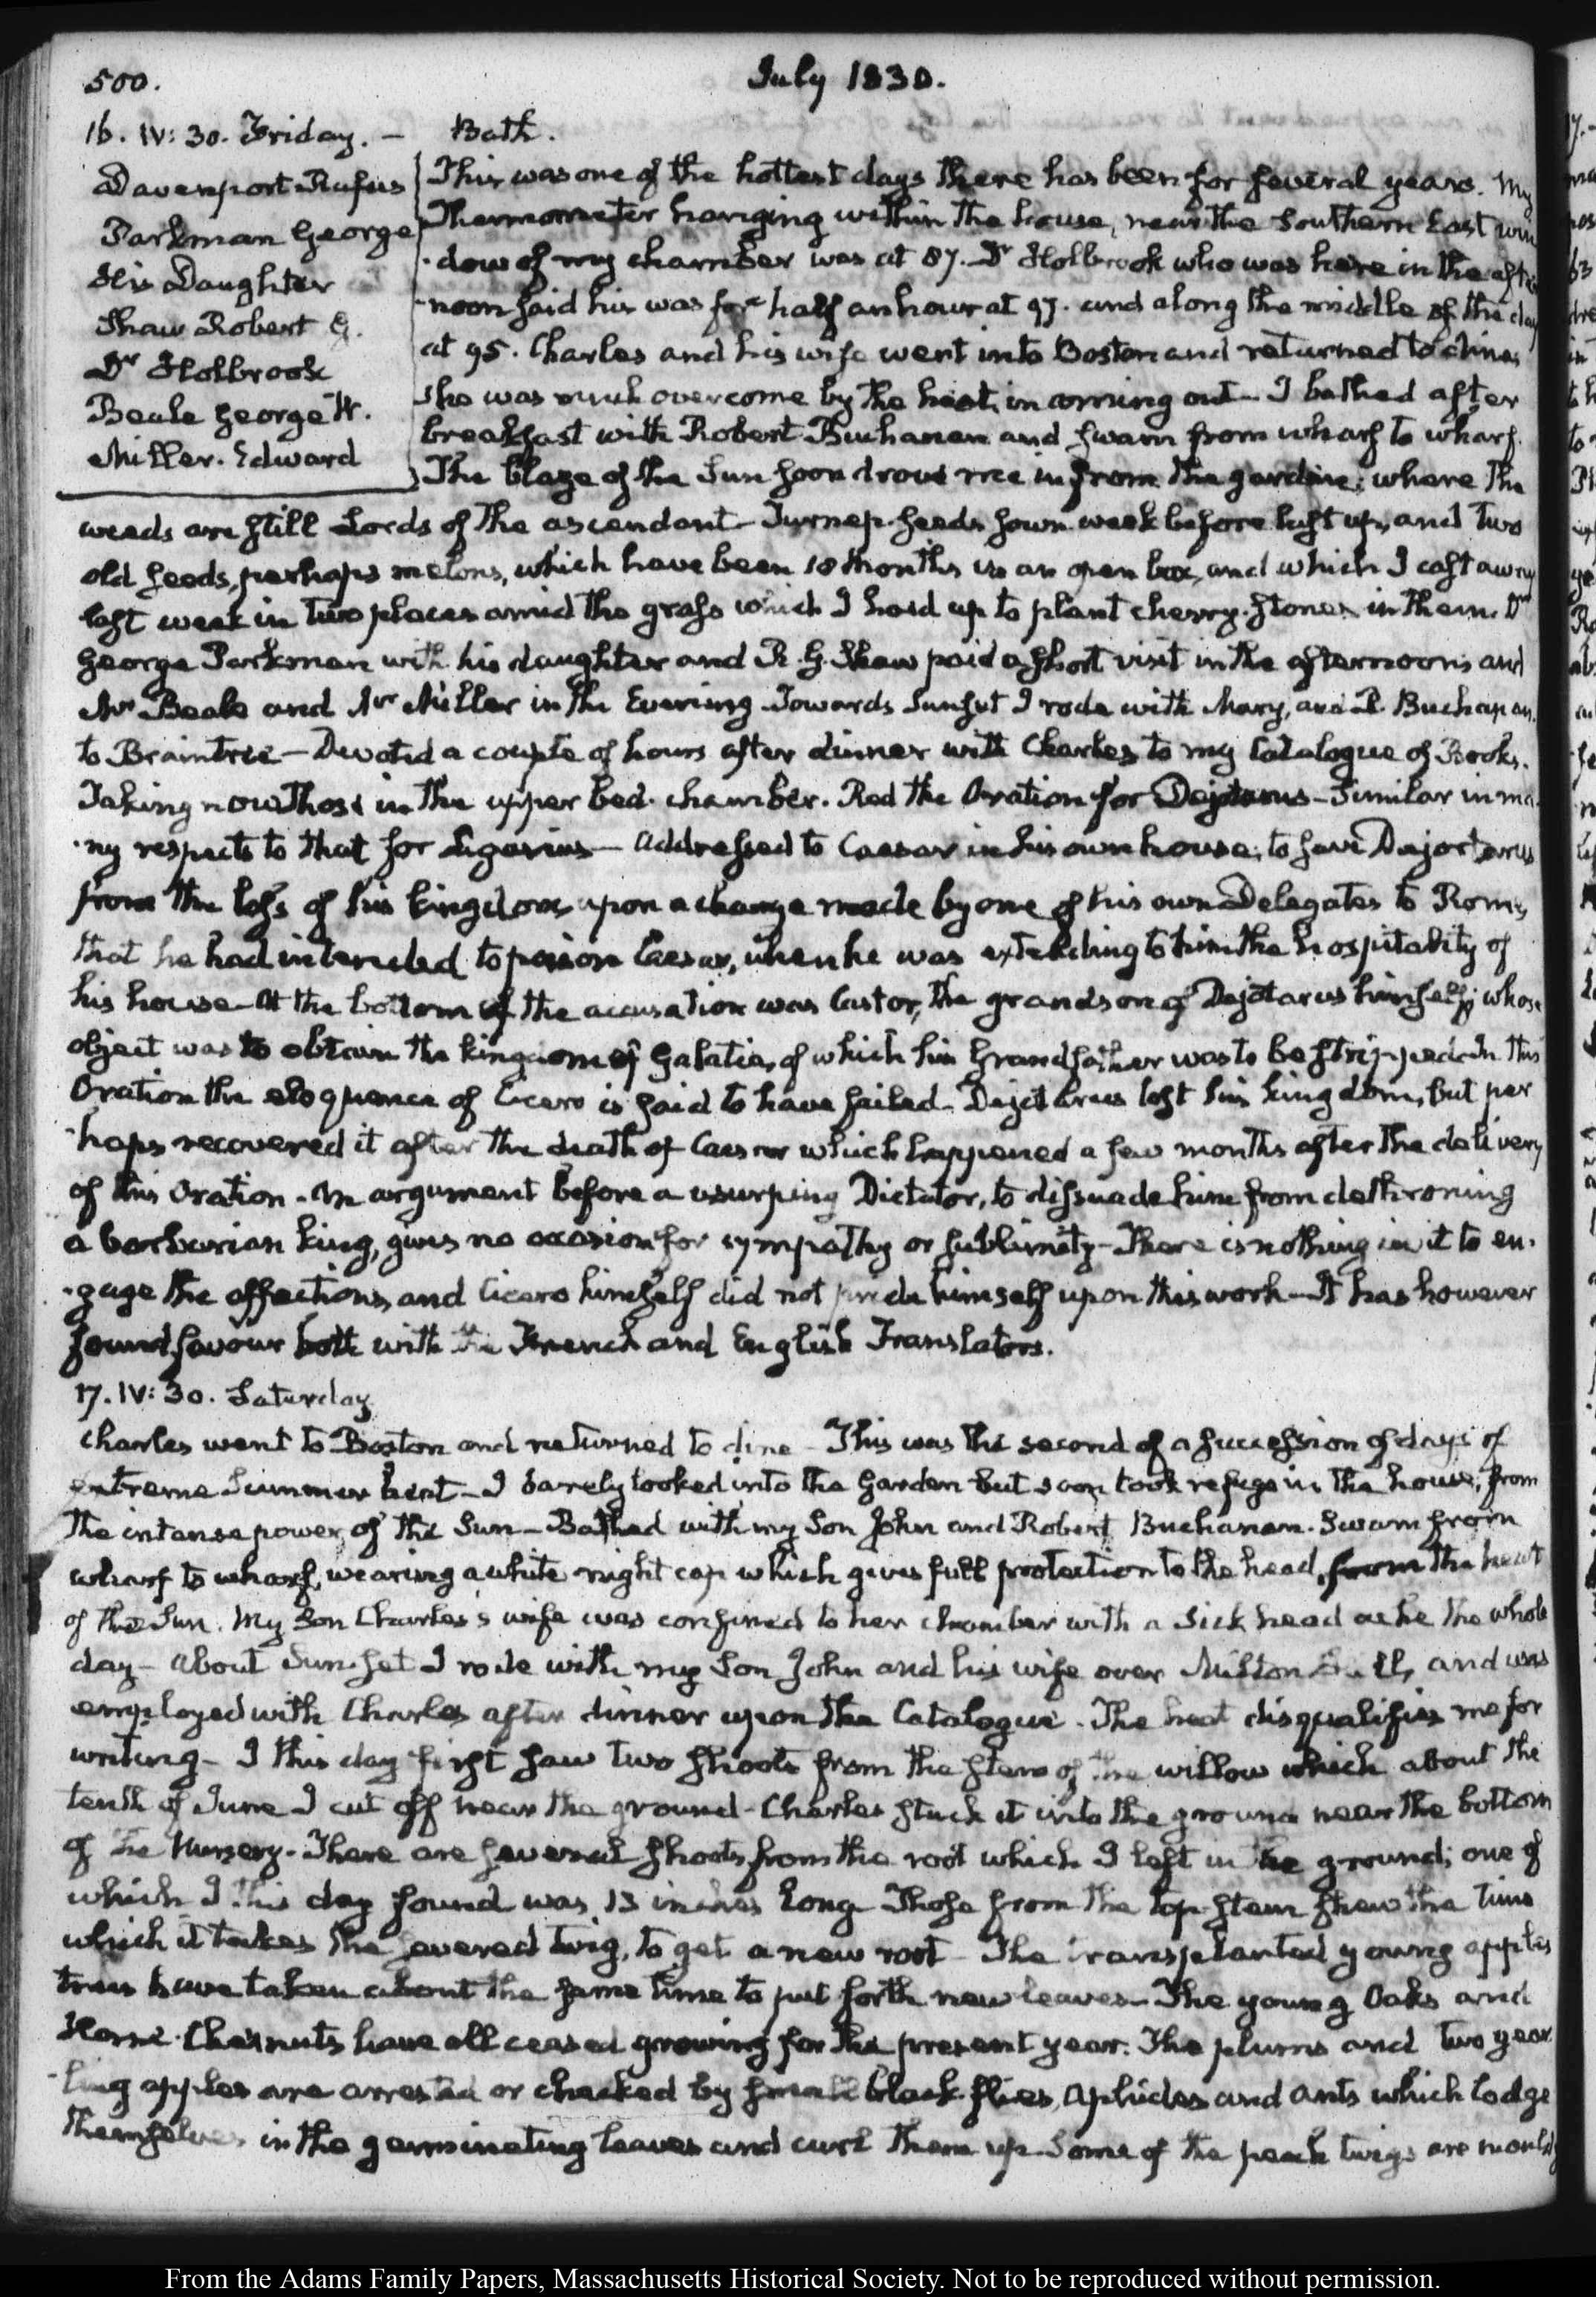 500.
July 1830.
16. IV: 30. Friday. — Bath.
Davenport Rufus
Parkman George
His Daughter
Shaw Robert G.
Dr Holbrook
Beale George W.
Miller. Edward
This was one of the hottest days there has been for several years. My
Thermometer hanging within the house, near the Southern East win
-dow of my chamber was at 87. Dr Holbrook who was here in the after
-noon said his was for half an hour at 97. and along the middle of the day
at 95. Charles and his wife went into Boston and returned to dine,
she was much overcome by the heat, in coming out — I bathed after
breakfast with Robert Buchanan and swam from wharf to wharf.
The blaze of the Sun soon drove me in from the garden; where the
weeds are still Lords of the ascendant — Turnep-seeds sown week before last up, and two
old seeds, perhaps melons, which have been 18 months in an open box, and which I cast away
last week in two places amid the grass which I hoed up to plant cherry-stones in them. Dr
George Parkman with his daughter and R. G. Shaw paid a short visit in the afternoon; and
Mr Beale and Mr Miller in the Evening. Towards Sunset I rode with Mary, and R. Buchanan,
to Braintree — Devoted a couple of hours after dinner with Charles to my Catalogue of Books.
Taking now those in the upper bed-chamber. Red the Oration for Dejotarus — Similar in ma-
-ny respects to that for Ligarius — addressed to Caesar in his own house; to save Dejotarus
from the loss of his kingdom, upon a charge made by one of his own Delegates to Rome,
that he had intended to poison Caesar, when he was extending to him the hospitality of
his house — At the bottom of the accusation was Castor, the grandson of Dejotarus himself; whose
object was to obtain the kingdom of Galatia, of which his Grandfather was to be stripped. In this
Oration the eloquence of Cicero is said to have failed — Dejotarus lost his kingdom, but per
-haps recovered it after the death of Caesar which happened a few months after the delivery
of this Oration. An argument before a usurping Dictator, to dissuade him from dethroning
a barbarian king, gives no occasion for sympathy or sublimity — There is nothing in it to en-
-gage the affections, and Cicero himself did not pride himself upon this work — It has however
found favour both with the French and English Translators.
17. IV: 30. Saturday
Charles went to Boston and returned to dine — This was the second of a succession of days of
extreme Summer heat — I barely looked into the Garden but soon took refuge in the house, from
the intense power of the Sun — Bathed with my Son John and Robert Buchanan. Swam from
wharf to wharf, wearing a white night cap which gives full protection to the head, from the heat
of the Sun. My Son Charles's wife was confined to her chamber with a sick head ache the whole
day — About Sunset I rode with my Son John and his wife over Milton Hill, and was
employed with Charles after dinner upon the Catalogue. The heat disqualifies me for
writing — I this day first saw two shoots from the stem of the willow which about the
tenth of June I cut off near the ground — Charles stuck it into the ground near the bottom
of the Nursery. There are several shoots from the root which I left in the ground; one of
which I this day found was 13 inches long Those from the top-stem shew the time
which it takes the severed twig, to get a new root — The transplanted young apple
trees have taken about the same time to put forth new leaves — The young Oaks and
Horse-Chesnuts have all ceased growing for the present year. The plums and two year
-ling apples are arrested or checked by small black flies, aphides and ants which lodge
themselves in the germinating leaves and curl them up. Some of the peach twigs are mouldy
From the Adams Family Papers, Massachusetts Historical Society. Not to be reproduced without permission.